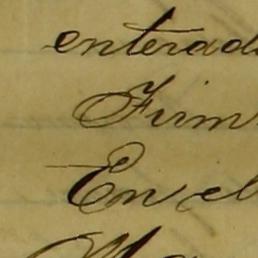 enterad
Firm
En el